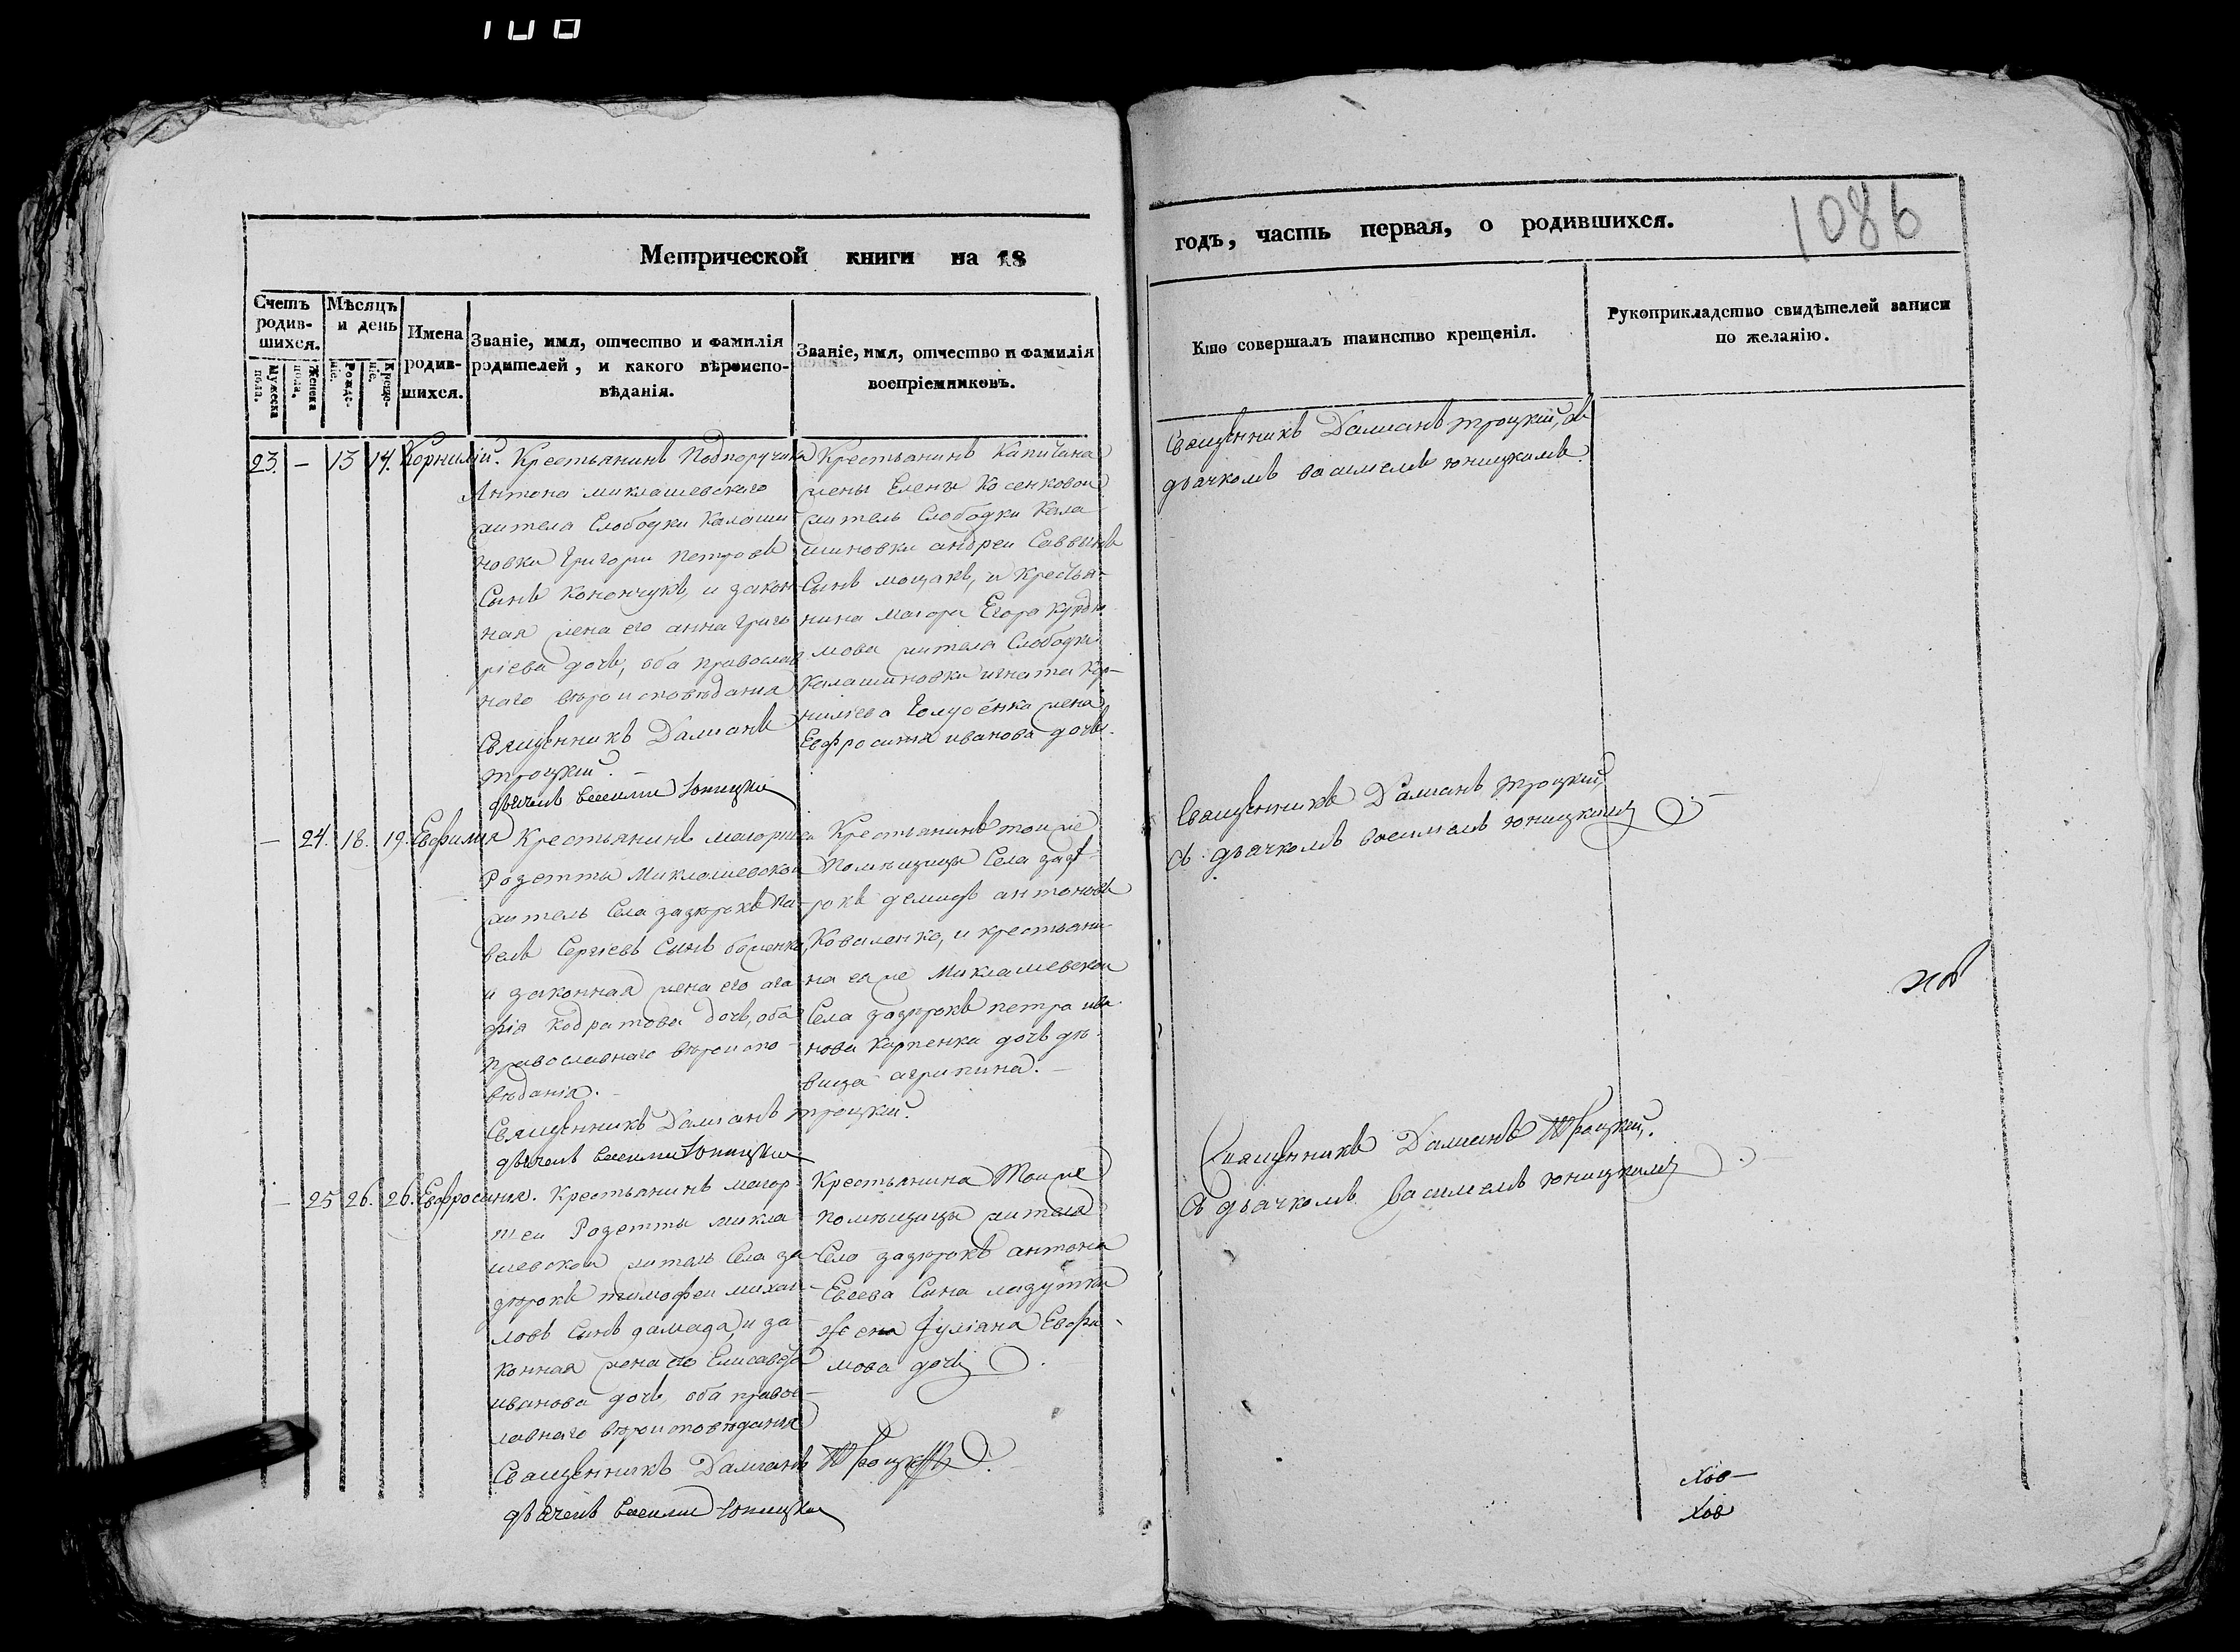 100
Метрической книги на 18
годъ, часть первая, о родившихся.
1086
Счетъ родив-шихся.
Мужеска пола.
Женска пола.
Мѣсяцъ и день
Рожде-ніе.
Креще-ніе.
Имена родив-шихся.
Званіе, имя, отчество и фамилія родителей, и какого вѣроиспо-вѣданія.
Званіе, имя, отчество и фамилія воспріемниковъ.
Кто совершалъ таинство крещенія.
Рукоприкладство свидѣтелей записи по желанію.
23. — 13 14. Корнилій. Крестьянинъ Подпоручика
Антона миклашевскаго
жителя Слободки Калаши
новки Григори Петровъ
Сынъ Конончукъ, и закон
ная жена его анна Григо
ріева дочь, оба православ
наго вѣроисповѣданія
Священникъ Даміанъ
троцкій. —
дьячекъ Василий Юницки
Крестьянинъ Капитана
жены Елены Косенковой
житель Слободки Кала
шиновки андреи Саввинъ
Сынъ мощакъ, и крестья-
нина маіора Егора
мова жителя Слободки
Калашиновки игната Кор-
ниліева Голубенка жена
Евфросинія иванова дочь.
Священникъ Даміанъ троцкій, съ
дьячкомъ василемъ юницкимъ.
— 24. 18. 19. Евфимія Крестьянинъ маіорши
Розетты Миклашевской
житель Села задірокъ па-
велъ Сергіевъ Сынъ боженко,
и законная жена его ага
фія Кодратова дочь, оба
православнаго вѣроиспо-
вѣданія. —
Священникъ Даміанъ троцкій.
дьячекъ Василий Юницки
Крестьянинъ тоиже
Помѣщицы Села заді-
рокъ демидъ антоновъ
Коваленко, и крестьяни-
на еяже Миклашевской
Села задірокъ петра ива
нова Карпенка дочь дѣ-
вица агрипина. —
Священникъ Даміанъ троцкій,
съ дьячкомъ василемъ юницкимъ
— 25 26. 26. Евфросинія. Крестьянинъ маіор
шеи Розетты микла
шевской житель Села за
дірокъ тимофеи михаи-
ловъ Сынъ дамада, и за
конная жена его Елисавефа
иванова дочь, оба правос-
лавнаго вѣроисповѣданія
Священникъ Даміанъ Троцкій.
дьячекъ Василий Юницки
Крестьянина Тоиже
помѣщицы жителя
Село задірокъ антона
Евсева Сына лазутки
жена Іуліана Евфи-
мова дочь
Священникъ Даміанъ Троцкій,
съ дьячкомъ василемъ юницкимъ